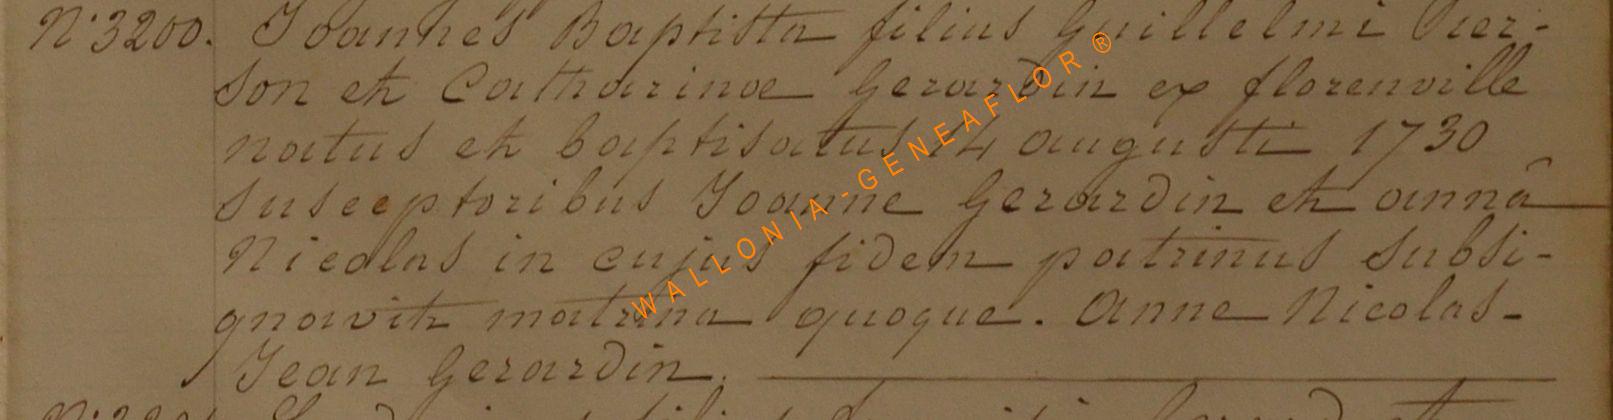 N° 3200. Joannes Baptista filius Guillelmi Pier-
son et Catharinae Gerardin ex florenville
natus et baptisatus 14 augusti 1730
susceptoribus Joanne Gerardin et annâ
Nicolas in cujus fidem patrinus subsi-
gnavit matrina quoque. Anne Nicolas-
Jean Gerardin.
WALLONIA-GENEAFLOR®